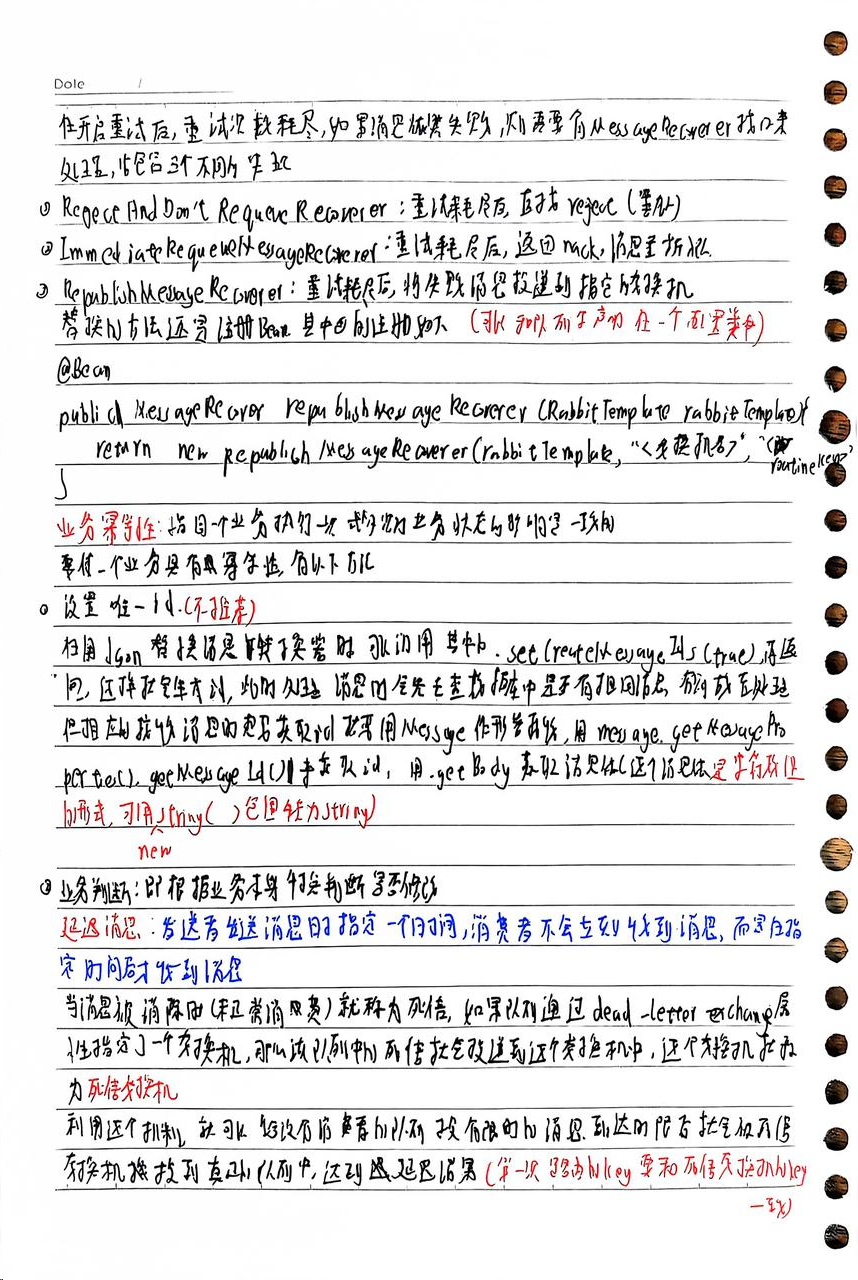 Date /
在开启重试后,重试次数耗尽,如果消息依然失败,则需要有MessageRecoverer接口来
处理,它包含三个不同的实现
① RejectAndDon't RequeueRecoverer:重试耗尽后,直接reject(丢弃)
② ImmediateRequeueMessageRecoverer:重试耗尽后,返回nack,消息重新入队.
③ RepublishMessageRecoverer:重试耗尽后,将失败消息投递到指定的交换机
替换的方法还是注册Bean 其中③的注册如下 (可以和队列等声明在一个配置类中)
@Bean
public MessageRecover republishMessageRecoverer(RabbitTemplate rabbitTemplate){
return new RepublishMessageRecoverer(rabbitTemplate, "<交换机名>", "<
routinekey>"
}
业务幂等性:指同一个业务执行一次或多次对业务状态的影响是一致的
要使一个业务具有幂等性,有以下方法
① 设置唯一id.(不推荐)
在用Json替换消息转换器时 可以调用其中的.setCreateMessageIds(true),
但相应的接收消息时 id 需要用Message作形参接收,用message.getMessagePro
perties().getMessageId()来获取id,用.getBody获取消息体(这个消息体是字符数组
的形式,可用String( )包围转为String)
new
② 业务判断:即根据业务本身 判断是否修改
延迟消息:发送者发送消息时指定一个时间,消费者不会立刻收到消息,而是在指
定时间后才收到消息
当消息被消除时(和正常消费)就称为死信,如果队列通过dead-letter-exchange属
性指定了一个交换机,那么该队列中的死信就会投递到这个交换机中,这个交换机称
为死信交换机
利用这个机制,就可以给没有消费者的队列投有限时的消息.到达时限后就会被死信
交换机投到真正的队列中,达到延迟效果(第一次 的key要和死信交换机的key
一致)